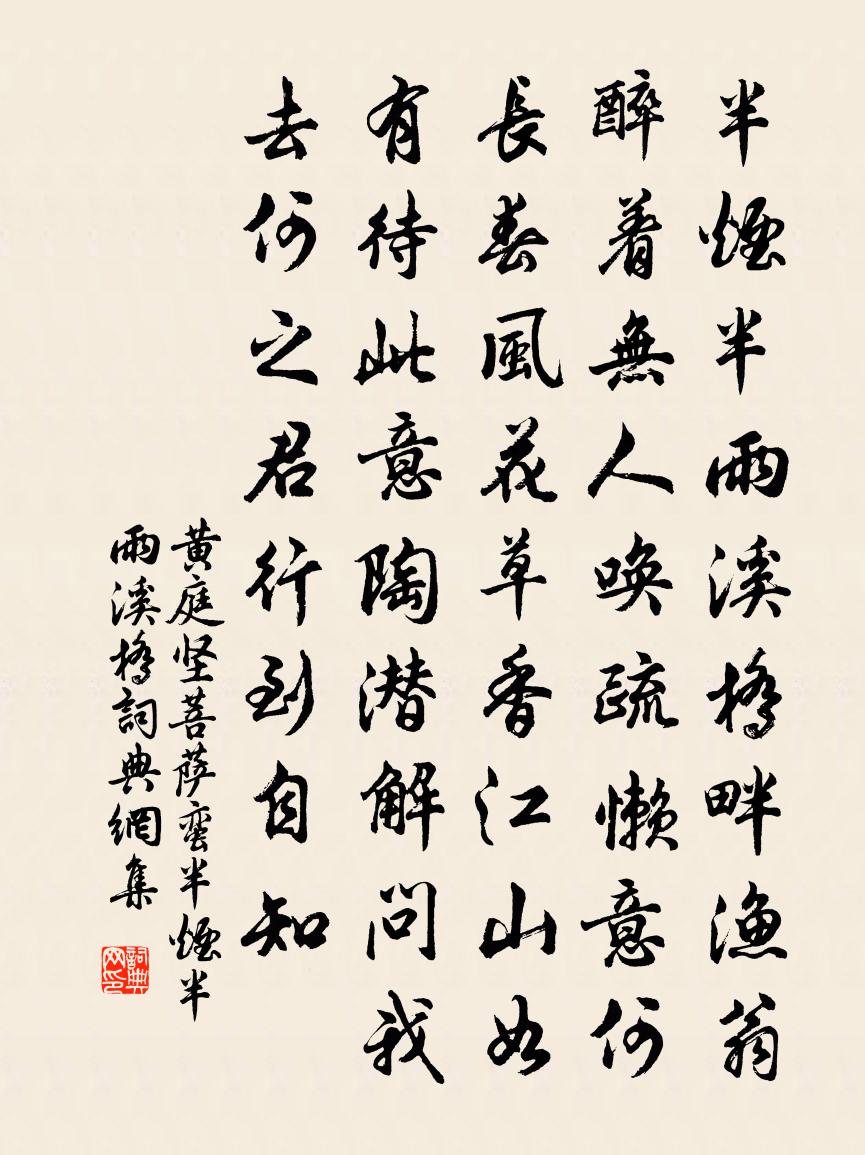 半煙半雨溪橋畔漁翁
醉着無人喚疏懶意何
長春風花草香江山如
有待此意陶潜解問我
去何之君行到自知
黄庭坚菩萨蛮半煙半
雨溪橋詞典網集
詞典网印